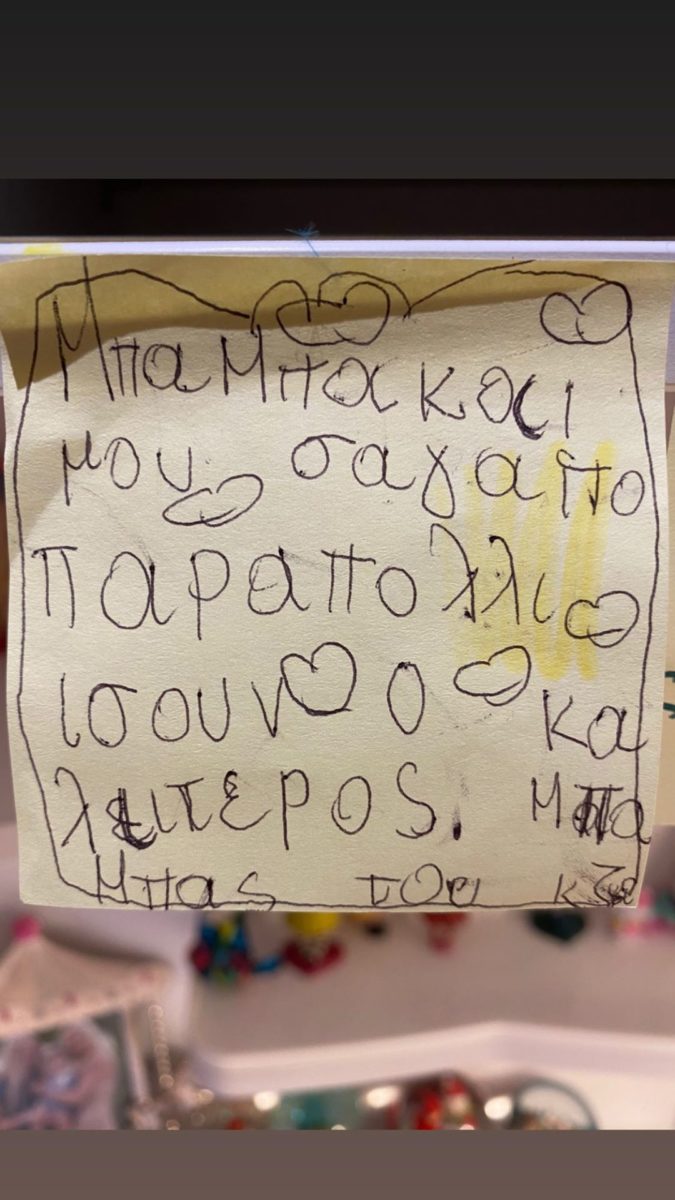 Μπαμπακαι
μου σαγαπο
παραπολλι
ισουν ο κα
λιτερος. μπα
μπας του